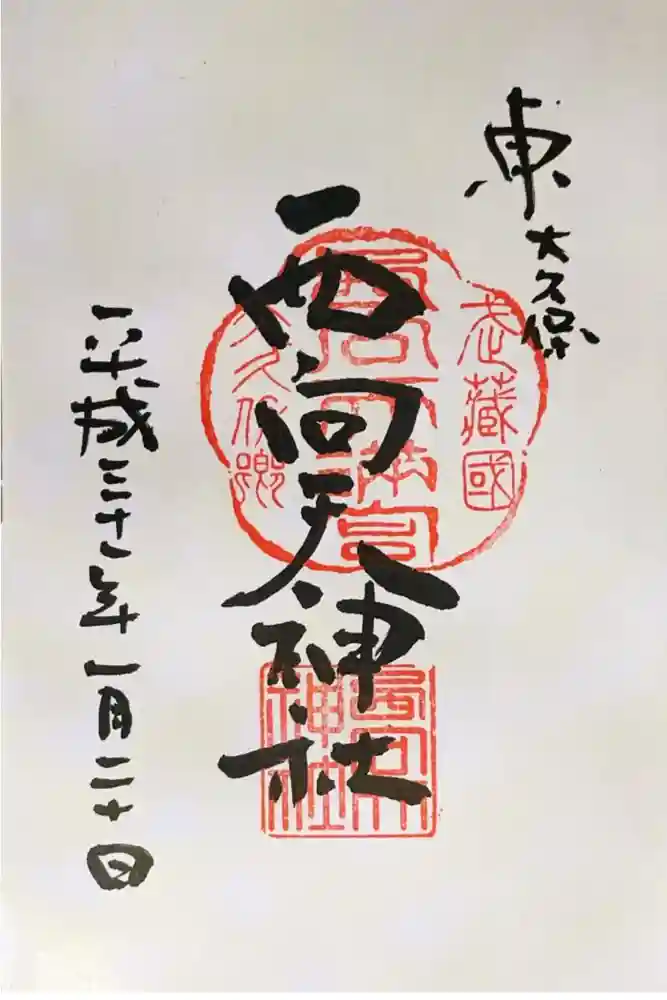 東大久保
西向天神社
平成三十一年一月二十日
武藏國
西向天満宮
大久保郷
西向天神社